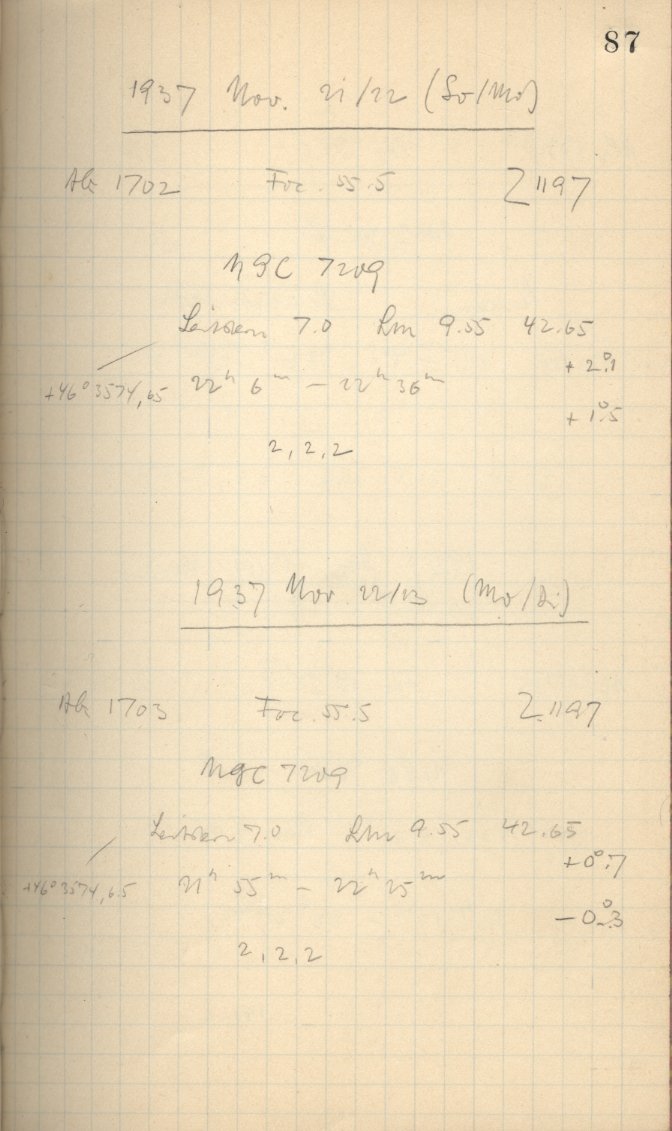 87
1937 Nov. 21/22 (So/Mo)
Ab 1702 Foc. 55.5 Z 1197
NGC 7209
Leitstern 7.0 Lm 9.55 42.65
+2°.1
+46° 3574, 6.5 22h 6m – 22h 36m
+1°.5
2, 2, 2
1937 Nov 22/23 (Mo/Di)
Ab 1703 Foc. 55.5 Z 1197
NGC 7209
Leitstern 7.0 Lm 9.55 42.65
+0°.7
+46° 3574, 6.5 21h 55m – 22h 25m
–0°.3
2, 2, 2